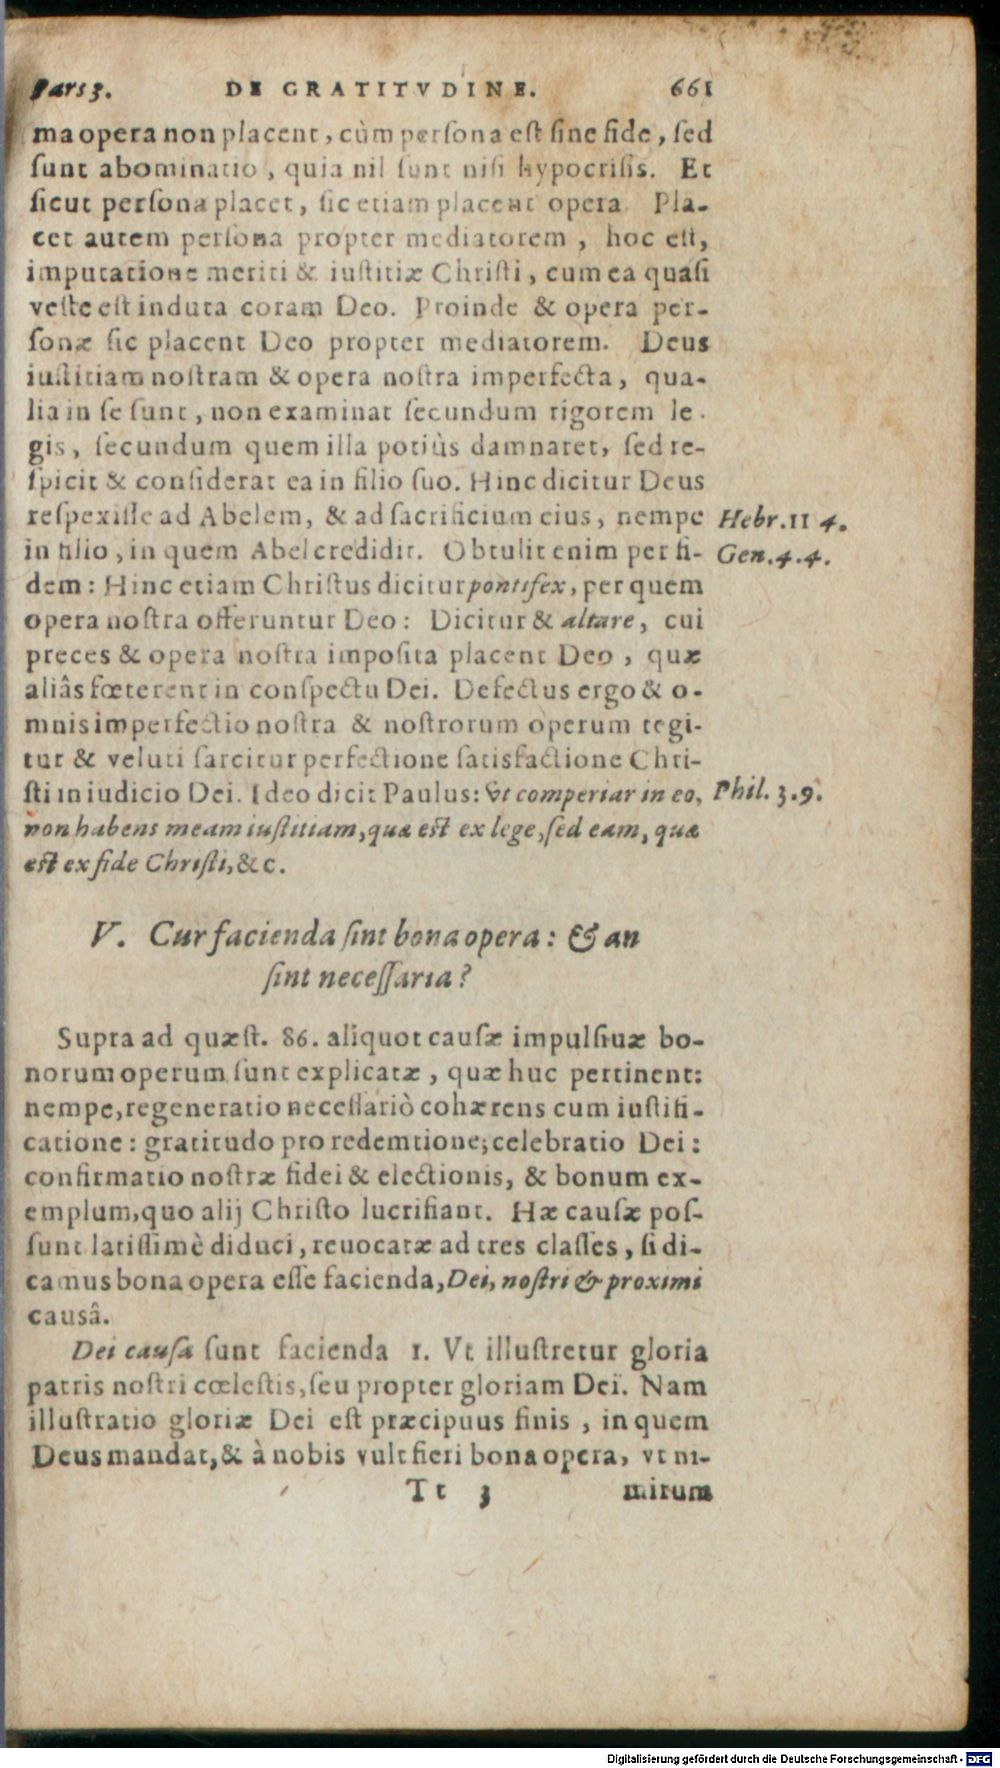 Pars 3. DE GRATITVDINE. 661
ma opera non placent, cùm persona est sine fide, sed
sunt abominatio, quia nil sunt nisi hypocrisis. Et
sicut persona placet, sic etiam placent opera. Pla-
cet autem persona propter mediatorem, hoc est,
imputatione meriti & iustitiæ Christi, cum ea quasi
veste est induta coram Deo. Proinde & opera per-
sonæ sic placent Deo propter mediatorem. Deus
iustitiam nostram & opera nostra imperfecta, qua-
lia in se sunt, non examinat secundum rigorem le-
gis, secundum quem illa potiùs damnaret, sed re-
spicit & considerat ea in filio suo. Hinc dicitur Deus
respexisse ad Abelem, & ad sacrificium eius, nempe Hebr. 11 4.
in filio, in quem Abel credidit. Obtulit enim per fi- Gen. 4. 4.
dem: Hinc etiam Christus dicitur pontifex, per quem
opera nostra offeruntur Deo: Dicitur & altare, cui
preces & opera nostra imposita placent Deo, quæ
aliâs fœterent in conspectu Dei. Defectus ergo & o-
mnis imperfectio nostra & nostrorum operum tegi-
tur & veluti sarcitur perfectione satisfactione Chri-
sti in iudicio Dei. Ideo dicit Paulus: Vt comperiar in eo, Phil. 3. 9.
non habens meam iustitiam, quæ est ex lege, sed eam, quæ
est ex fide Christi, &c.
V. Cur facienda sint bona opera: & an
sint necessaria?
Supra ad quæst. 86. aliquot causæ impulsiuæ bo-
norum operum sunt explicatæ, quæ huc pertinent:
nempe, regeneratio necessariò cohærens cum iustifi-
catione: gratitudo pro redemtione; celebratio Dei:
confirmatio nostræ fidei & electionis, & bonum ex-
emplum, quo alij Christo lucrifiant. Hæ causæ pos-
sunt latissimè diduci, reuocatæ ad tres classes, si di-
camus bona opera esse facienda, Dei, nostri & proximi
causâ.
Dei causa sunt facienda 1. Vt illustretur gloria
patris nostri cœlestis, seu propter gloriam Dei. Nam
illustratio gloriæ Dei est præcipuus finis, in quem
Deus mandat, & à nobis vult fieri bona opera, vt ni-
Tt 3 mirum
Digitalisierung gefördert durch die Deutsche Forschungsgemeinschaft - DFG